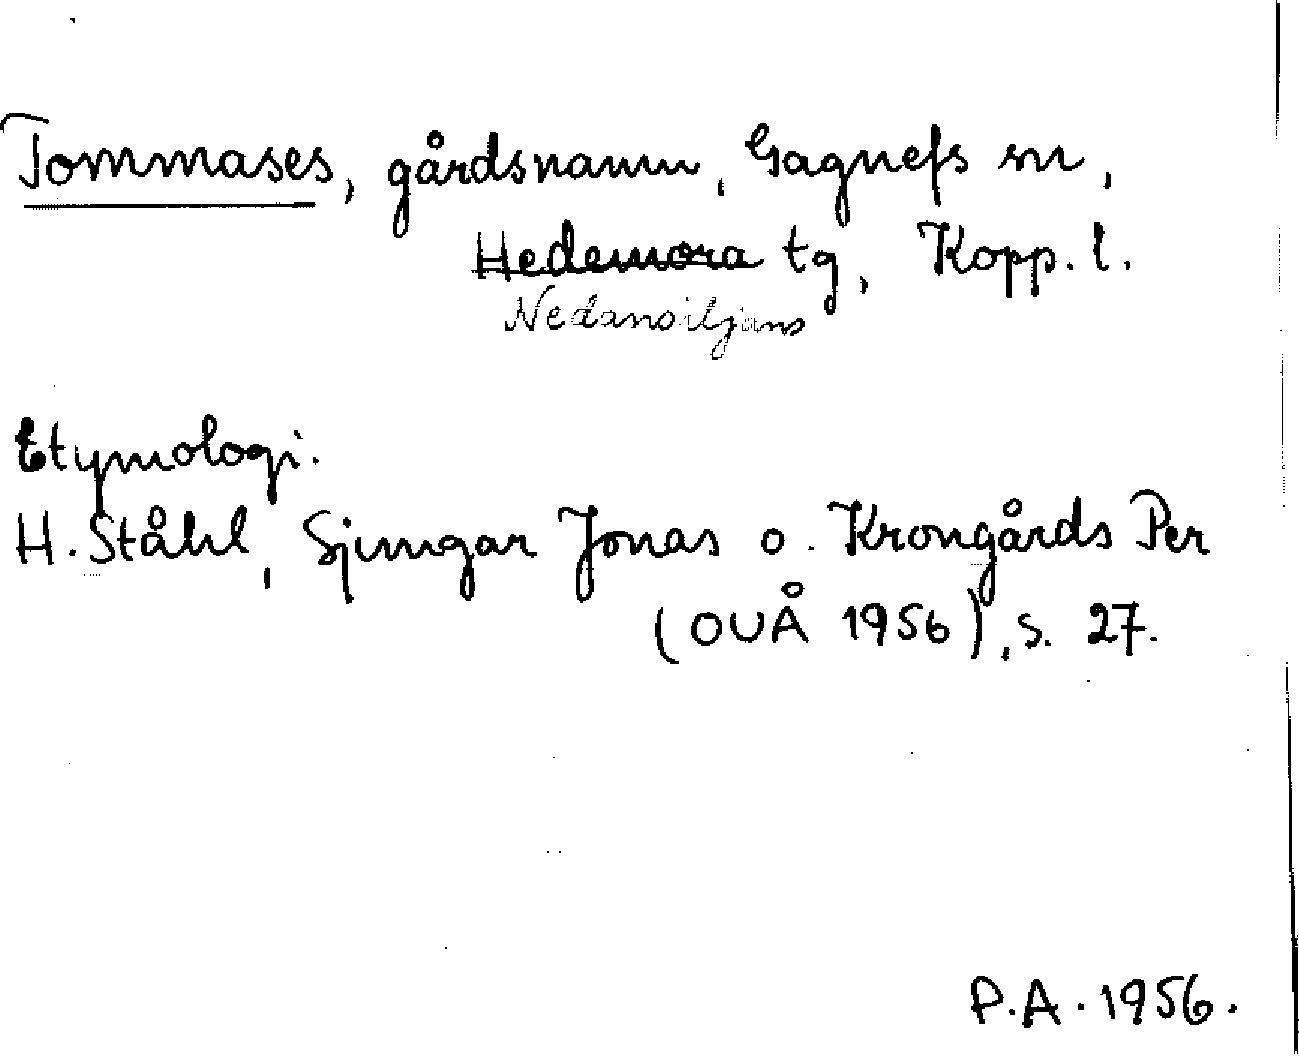 Tommases, gårdsnamn, Gagnefs sn,
Hedemora tg, Kopp. l.
Nedansiljans
Etymologi.
H. Ståhl, Sjungar Jonas o. Krongårds Per
(OUÅ 1956), s. 27.
P.A. 1956.